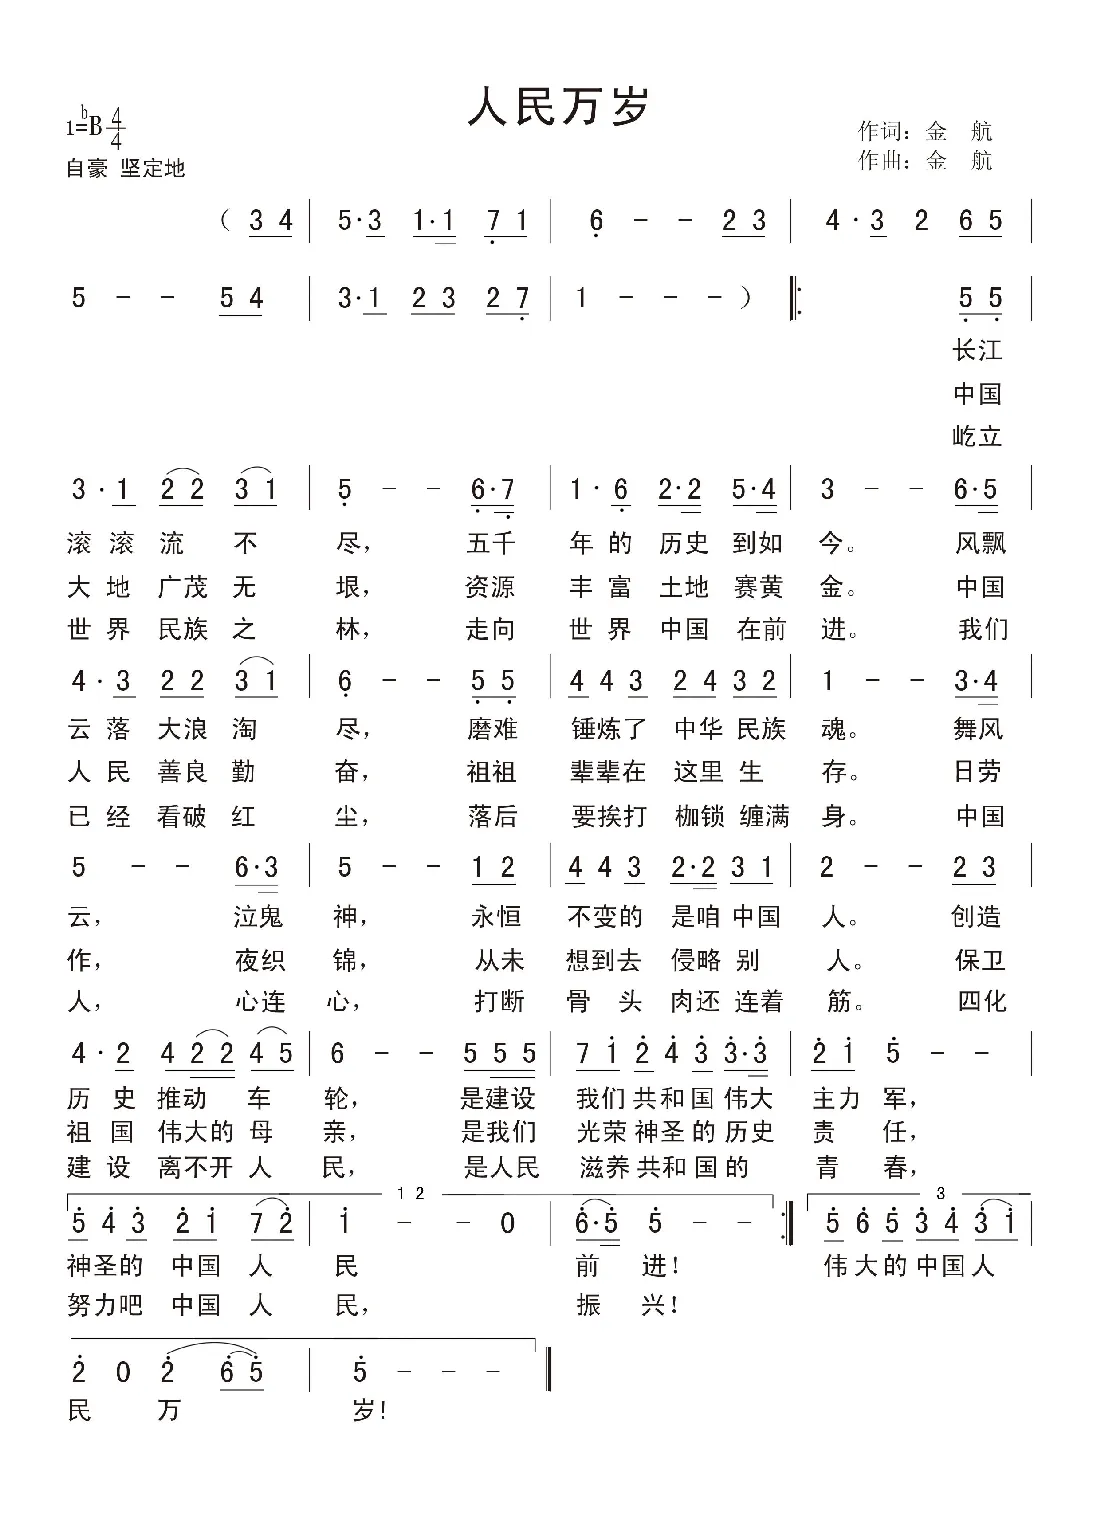 人民万岁
1=♭B 4/4
作词：金 航
自豪 坚定地
作曲：金 航
（ 3 4 | 5·3 1·1 7 1 | 6 - - 2 3 | 4·3 2 6 5 |
5 - - 5 4 | 3·1 2 3 2 7 | 1 - - - ） ‖: 5 5 |
长江
中国
屹立
3·1 2 2 3 1 | 5 - - 6·7 | 1·6 2·2 5·4 | 3 - - 6·5 |
滚 滚 流 不 尽， 五千 年 的 历史 到如 今。 风飘
大 地 广茂 无 垠， 资源 丰 富 土地 赛黄 金。 中国
世 界 民族 之 林， 走向 世 界 中国 在前 进。 我们
4·3 2 2 3 1 | 6 - - 5 5 | 4 4 3 2 4 3 2 | 1 - - 3·4 |
云 落 大浪 淘 尽， 磨难 锤炼了 中华 民族 魂。 舞风
人 民 善良 勤 奋， 祖祖 辈辈在 这里 生 存。 日劳
已 经 看破 红 尘， 落后 要挨打 枷锁 缠满 身。 中国
5 - - 6·3 | 5 - - 1 2 | 4 4 3 2·2 3 1 | 2 - - 2 3 |
云， 泣鬼 神， 永恒 不变的 是咱 中国 人。 创造
作， 夜织 锦， 从未 想到去 侵略 别 人。 保卫
人， 心连 心， 打断 骨 头 肉还 连着 筋。 四化
4·2 4 2 2 4 5 | 6 - - 5 5 5 | 7 1 2 4 3 3·3 | 2 1 5 - - |
历 史 推动 车 轮， 是建设 我们 共和国 伟大 主力 军，
祖 国 伟大的 母 亲， 是我们 光荣 神圣的 历史 责 任，
建 设 离不开 人 民， 是人民 滋养 共和国的 青 春，
1 2
3
5 4 3 2 1 7 2 | 1 - - 0 | 6·5 5 - - :‖ 5 6 5 3 4 3 1 |
神圣的 中国 人 民 前 进！ 伟大的中国人
努力吧 中国 人 民， 振 兴！
2 0 2 6 5 | 5 - - - ‖
民 万 岁！